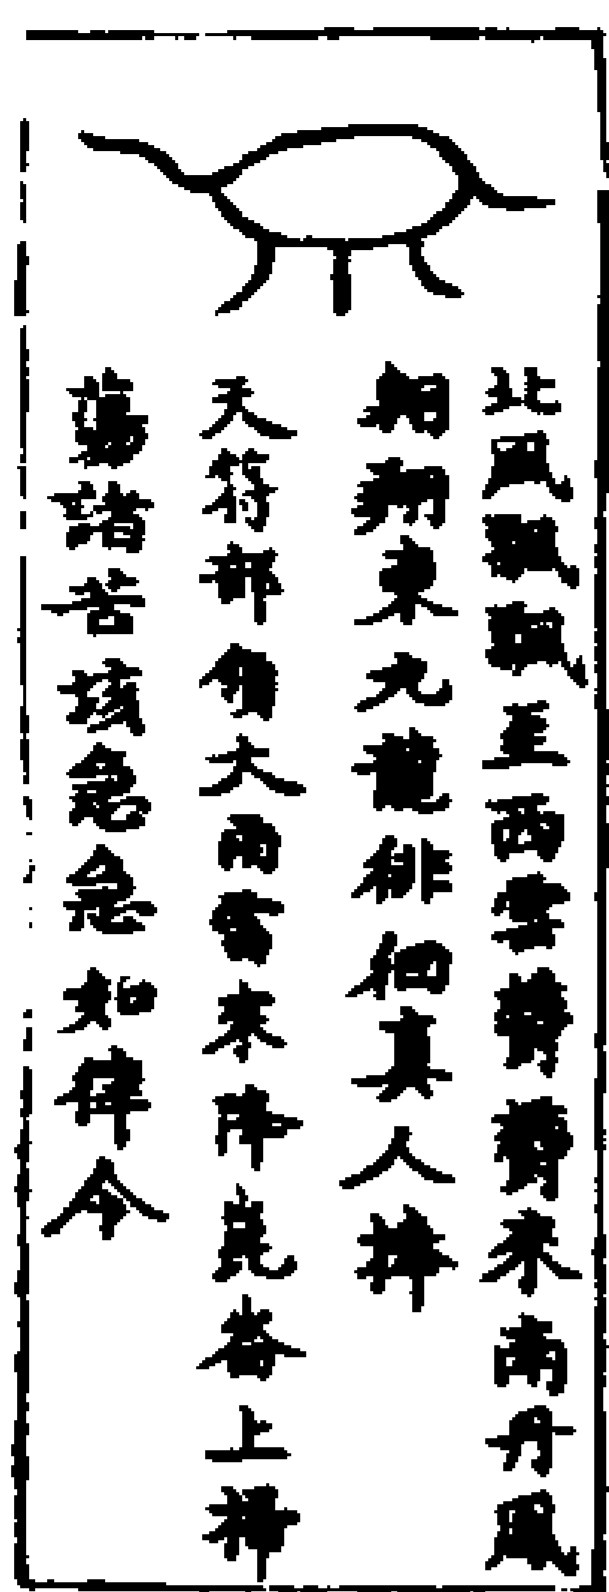 北風飄飄至西雲靉靉來南丹鳳
翱翔東九龍徘徊真人捧
天符部領大雨雷來降崑崙上掃
蕩諸苦垓急急如律令